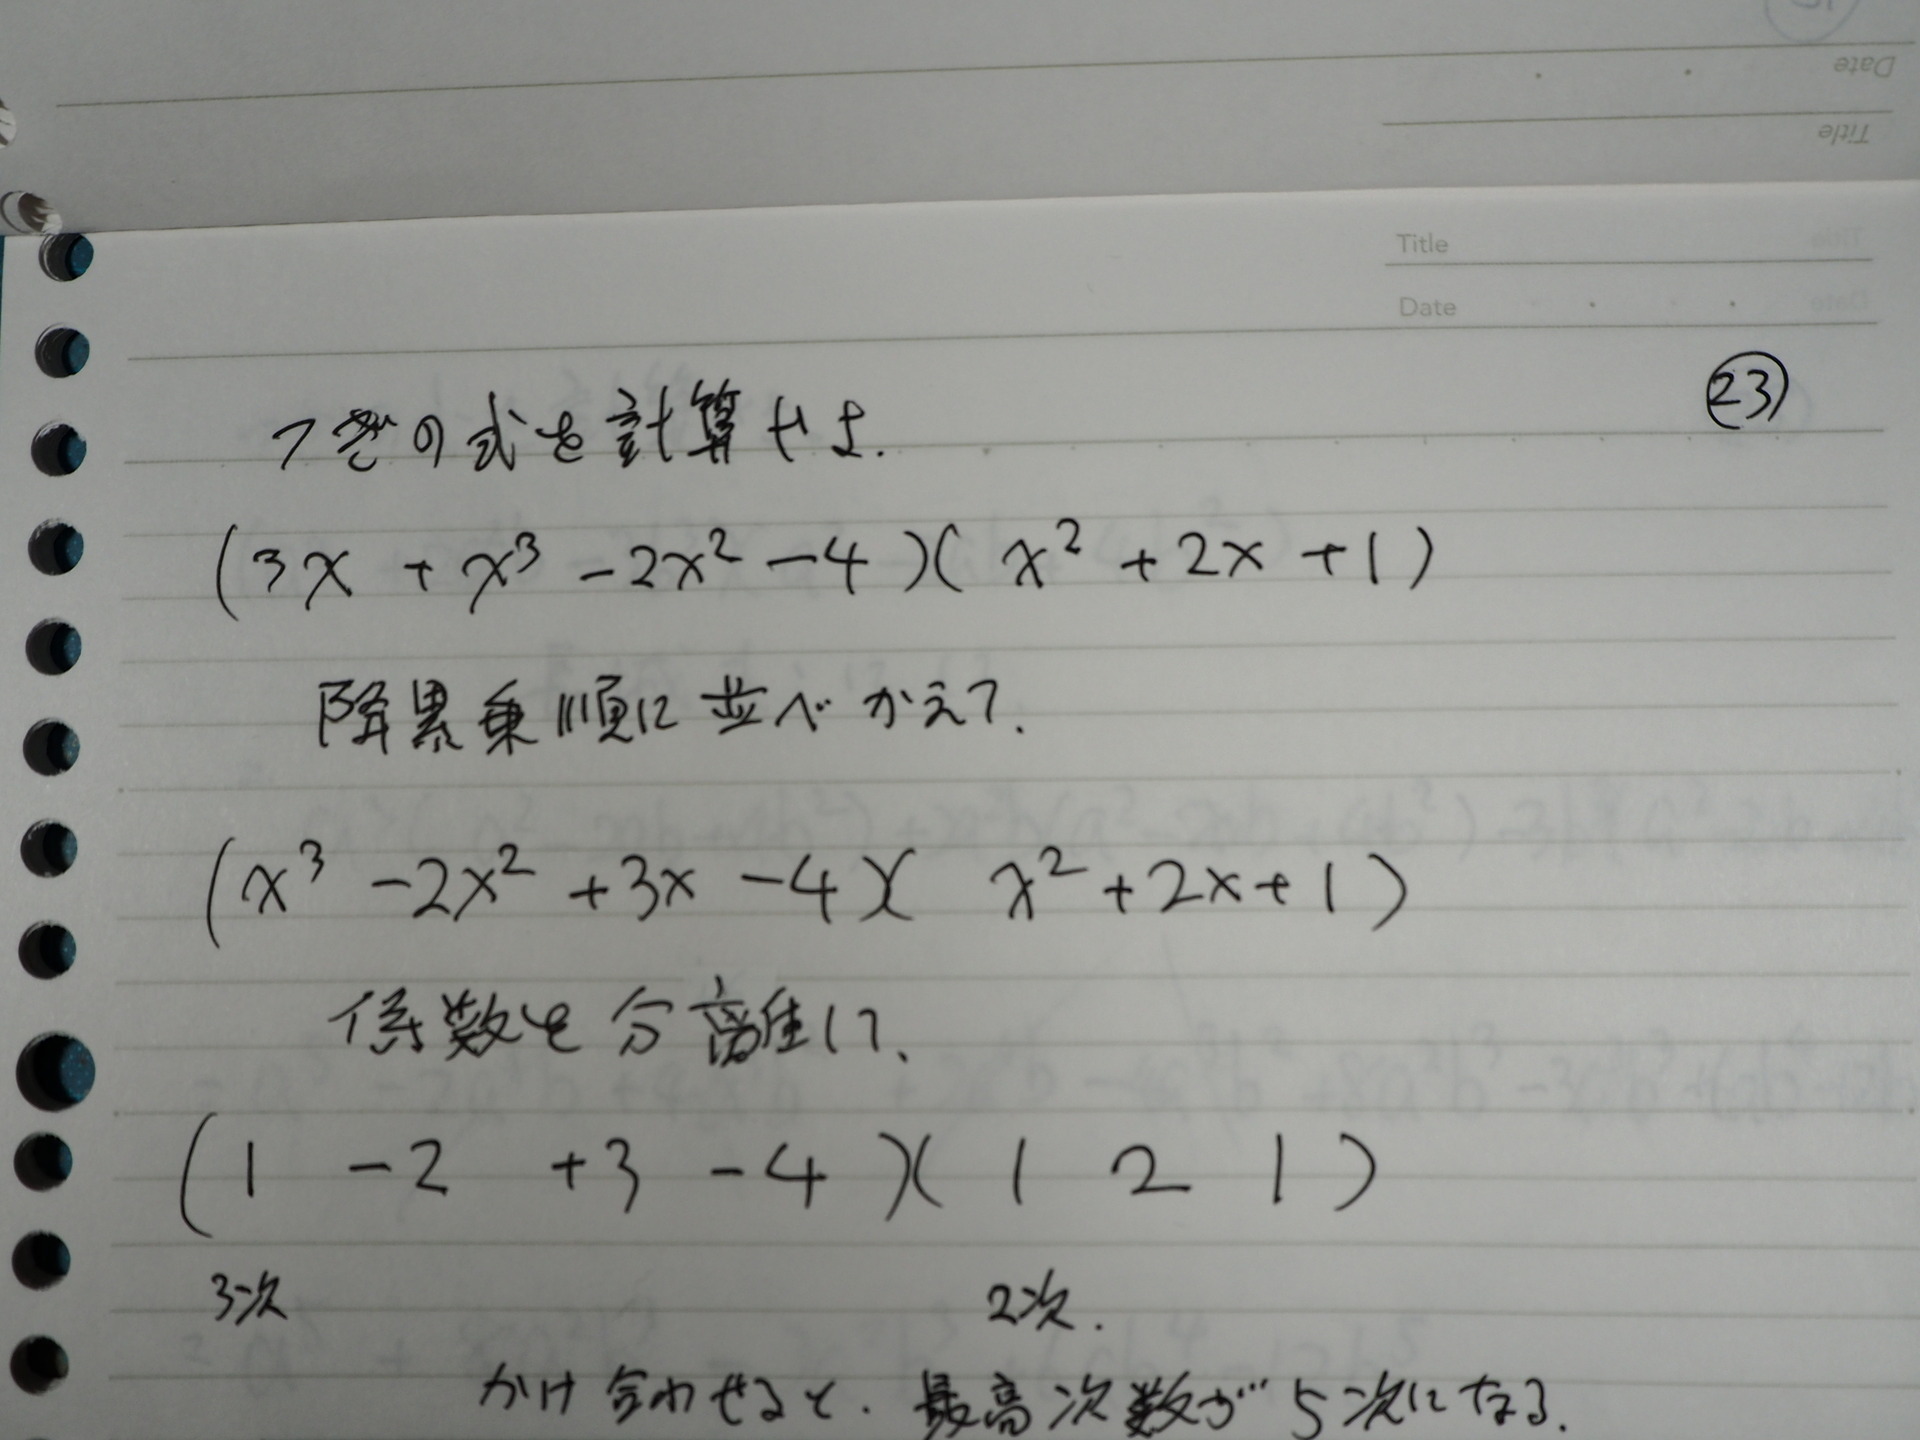 Date
Title
Title
Date
㉓
つぎの式を計算せよ.
(3x + x³ - 2x² - 4)(x² + 2x + 1)
降累乗順に並べかえて.
(x³ - 2x² + 3x - 4)(x² + 2x + 1)
係数を分離して、
(1 -2 +3 -4)(1 2 1)
3次 2次.
かけ合わせると. 最高次数が5次になる.